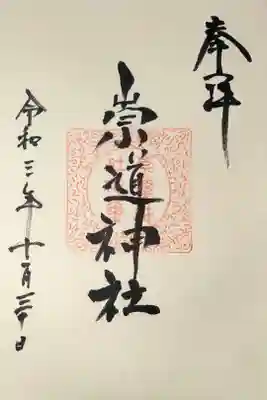 奉拝
崇道神社
令和三年十月三十日